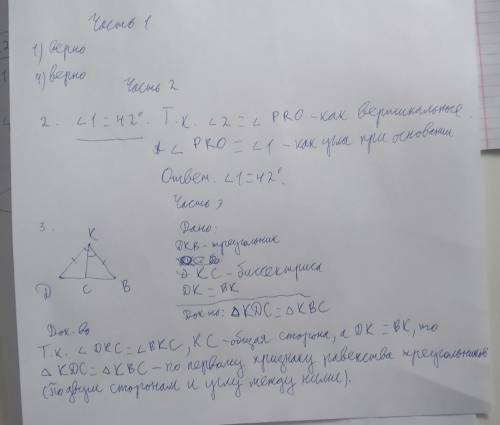 Часть 1
1) Верно
4) верно
Часть 2
2. ∠1=42°. Т.к. ∠2=∠ PRO - как вертикальные.
∠ PRO = ∠1 - как углы при основании
Ответ. ∠1=42°.
Часть 3
3.
Дано:
DKB - треугольник
KC - биссектриса
DK = BK
Док-ть: △KDC=△KBC
K
D C B
Док-во
Т.к. ∠DKC=∠BKC, KC - общая сторона, а DK = BK, то
△KDC=△KBC - по первому признаку равенства треугольников
(По двум сторонам и углу между ними).